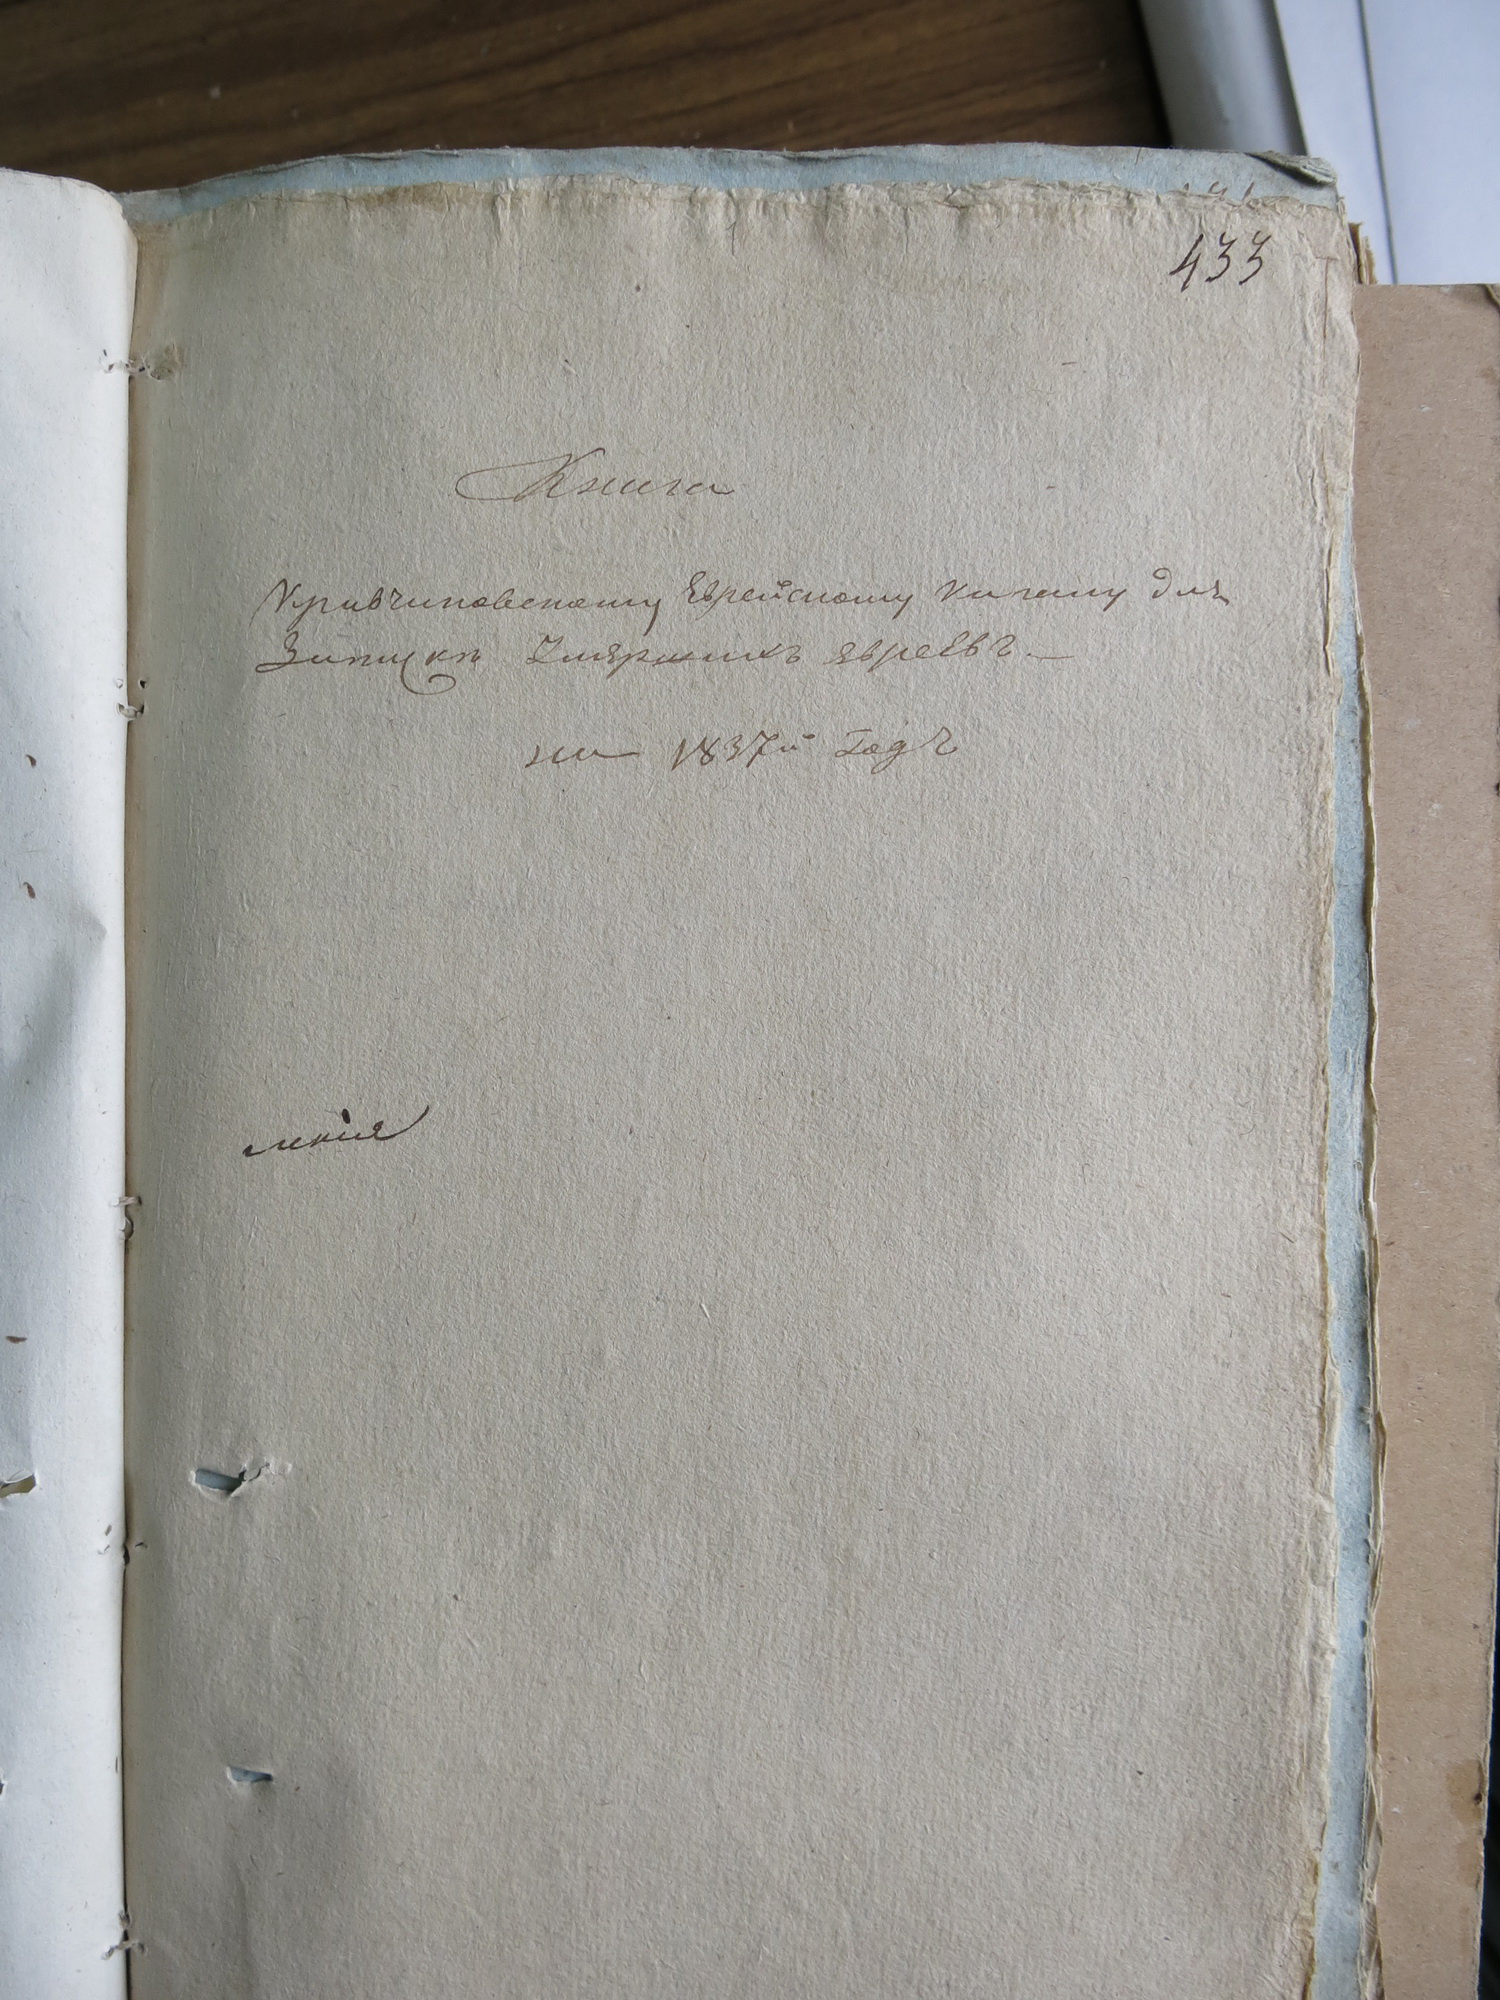 433
Книга
Кривчиковскому Еврейскому Кагалу для
Записки Умершихъ евреевъ.—
на 1837й годъ
ленія